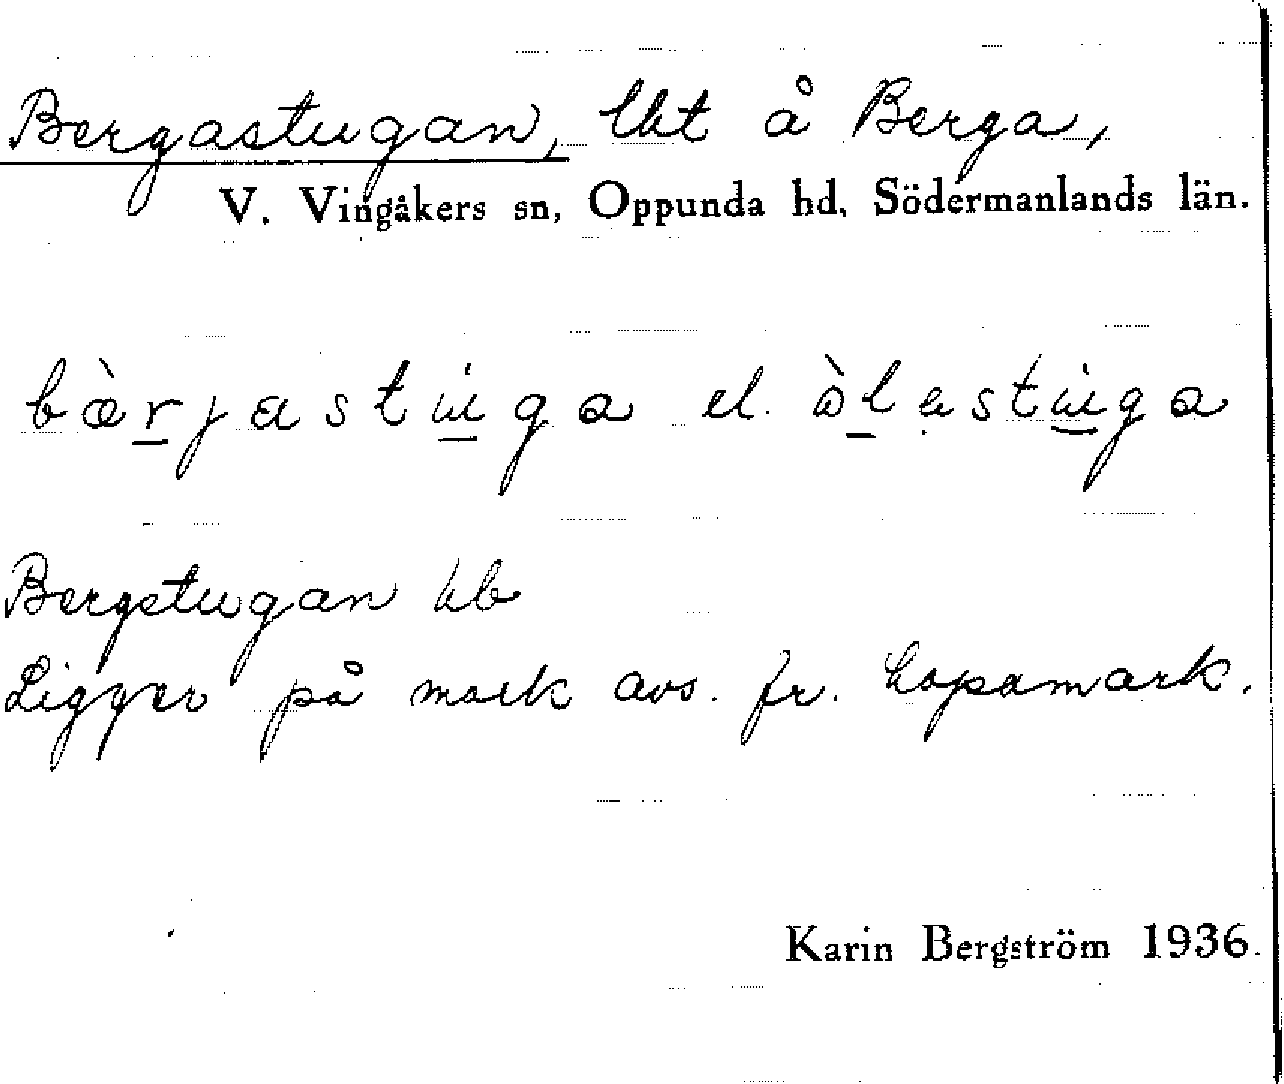 Bergastugan, lht å Berga,
V. Vingåkers sn, Oppunda hd, Södermanlands län.
bæ̀r̲jastu̲̇ga el. òl̲astu̲̇ga
Bergstugan hb
Ligger på mark avs. fr. hopamark.
Karin Bergström 1936.